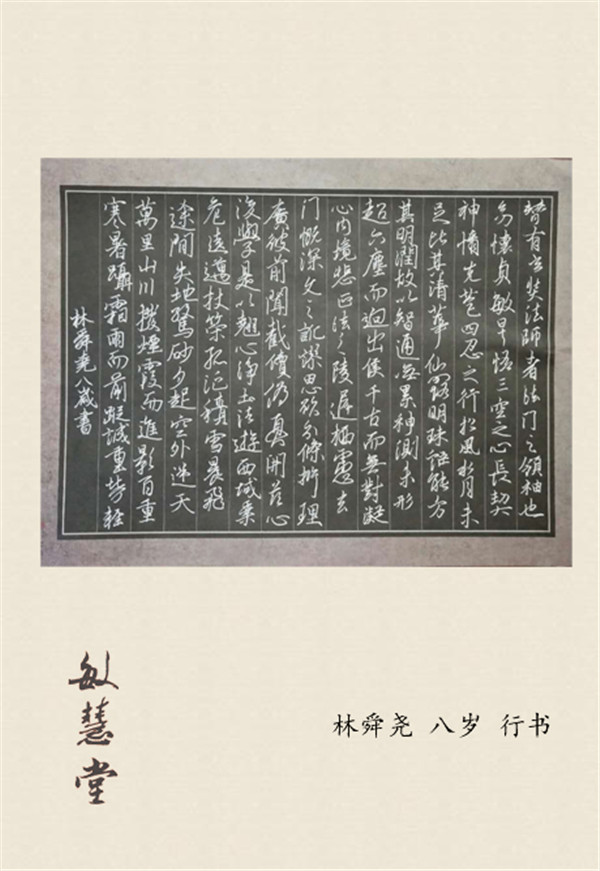 替有玄奘法師者法門之領袖也
幼懷貞敏早悟三空之心長契
神情先苞四忍之行松風水月未
足比其清華仙露明珠詎能方
其明潤故以智通無累神測未形
超六塵而迥出隻千古而無對凝
心內境悲正法之陵遲栖慮玄
門慨深文之訛謬思欲分條析理
廣彼前聞截偽續真開茲
後學是以翹心淨土法遊西域乘
危遠邁杖策孤征積雪晨飛
途間失地驚砂夕起空外迷天
萬里山川撥煙霞而進影百重
寒暑躡霜雨而前蹤誠重勞輕
林舜堯八歲書
敏慧堂
林舜尧 八岁 行书